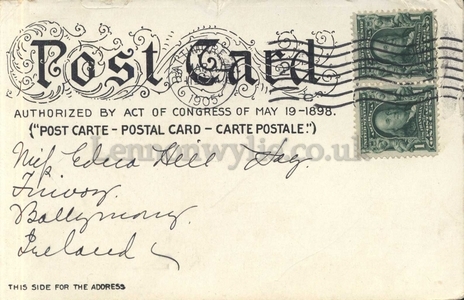 Post Card
1905
AUTHORIZED BY ACT OF CONGRESS OF MAY 19-1898.
("POST CARTE - POSTAL CARD - CARTE POSTALE")
Lennonwylie.co.uk
Miss Edna Hill Hay.
Finvoy.
Ballymoney.
Ireland
THIS SIDE FOR THE ADDRESS